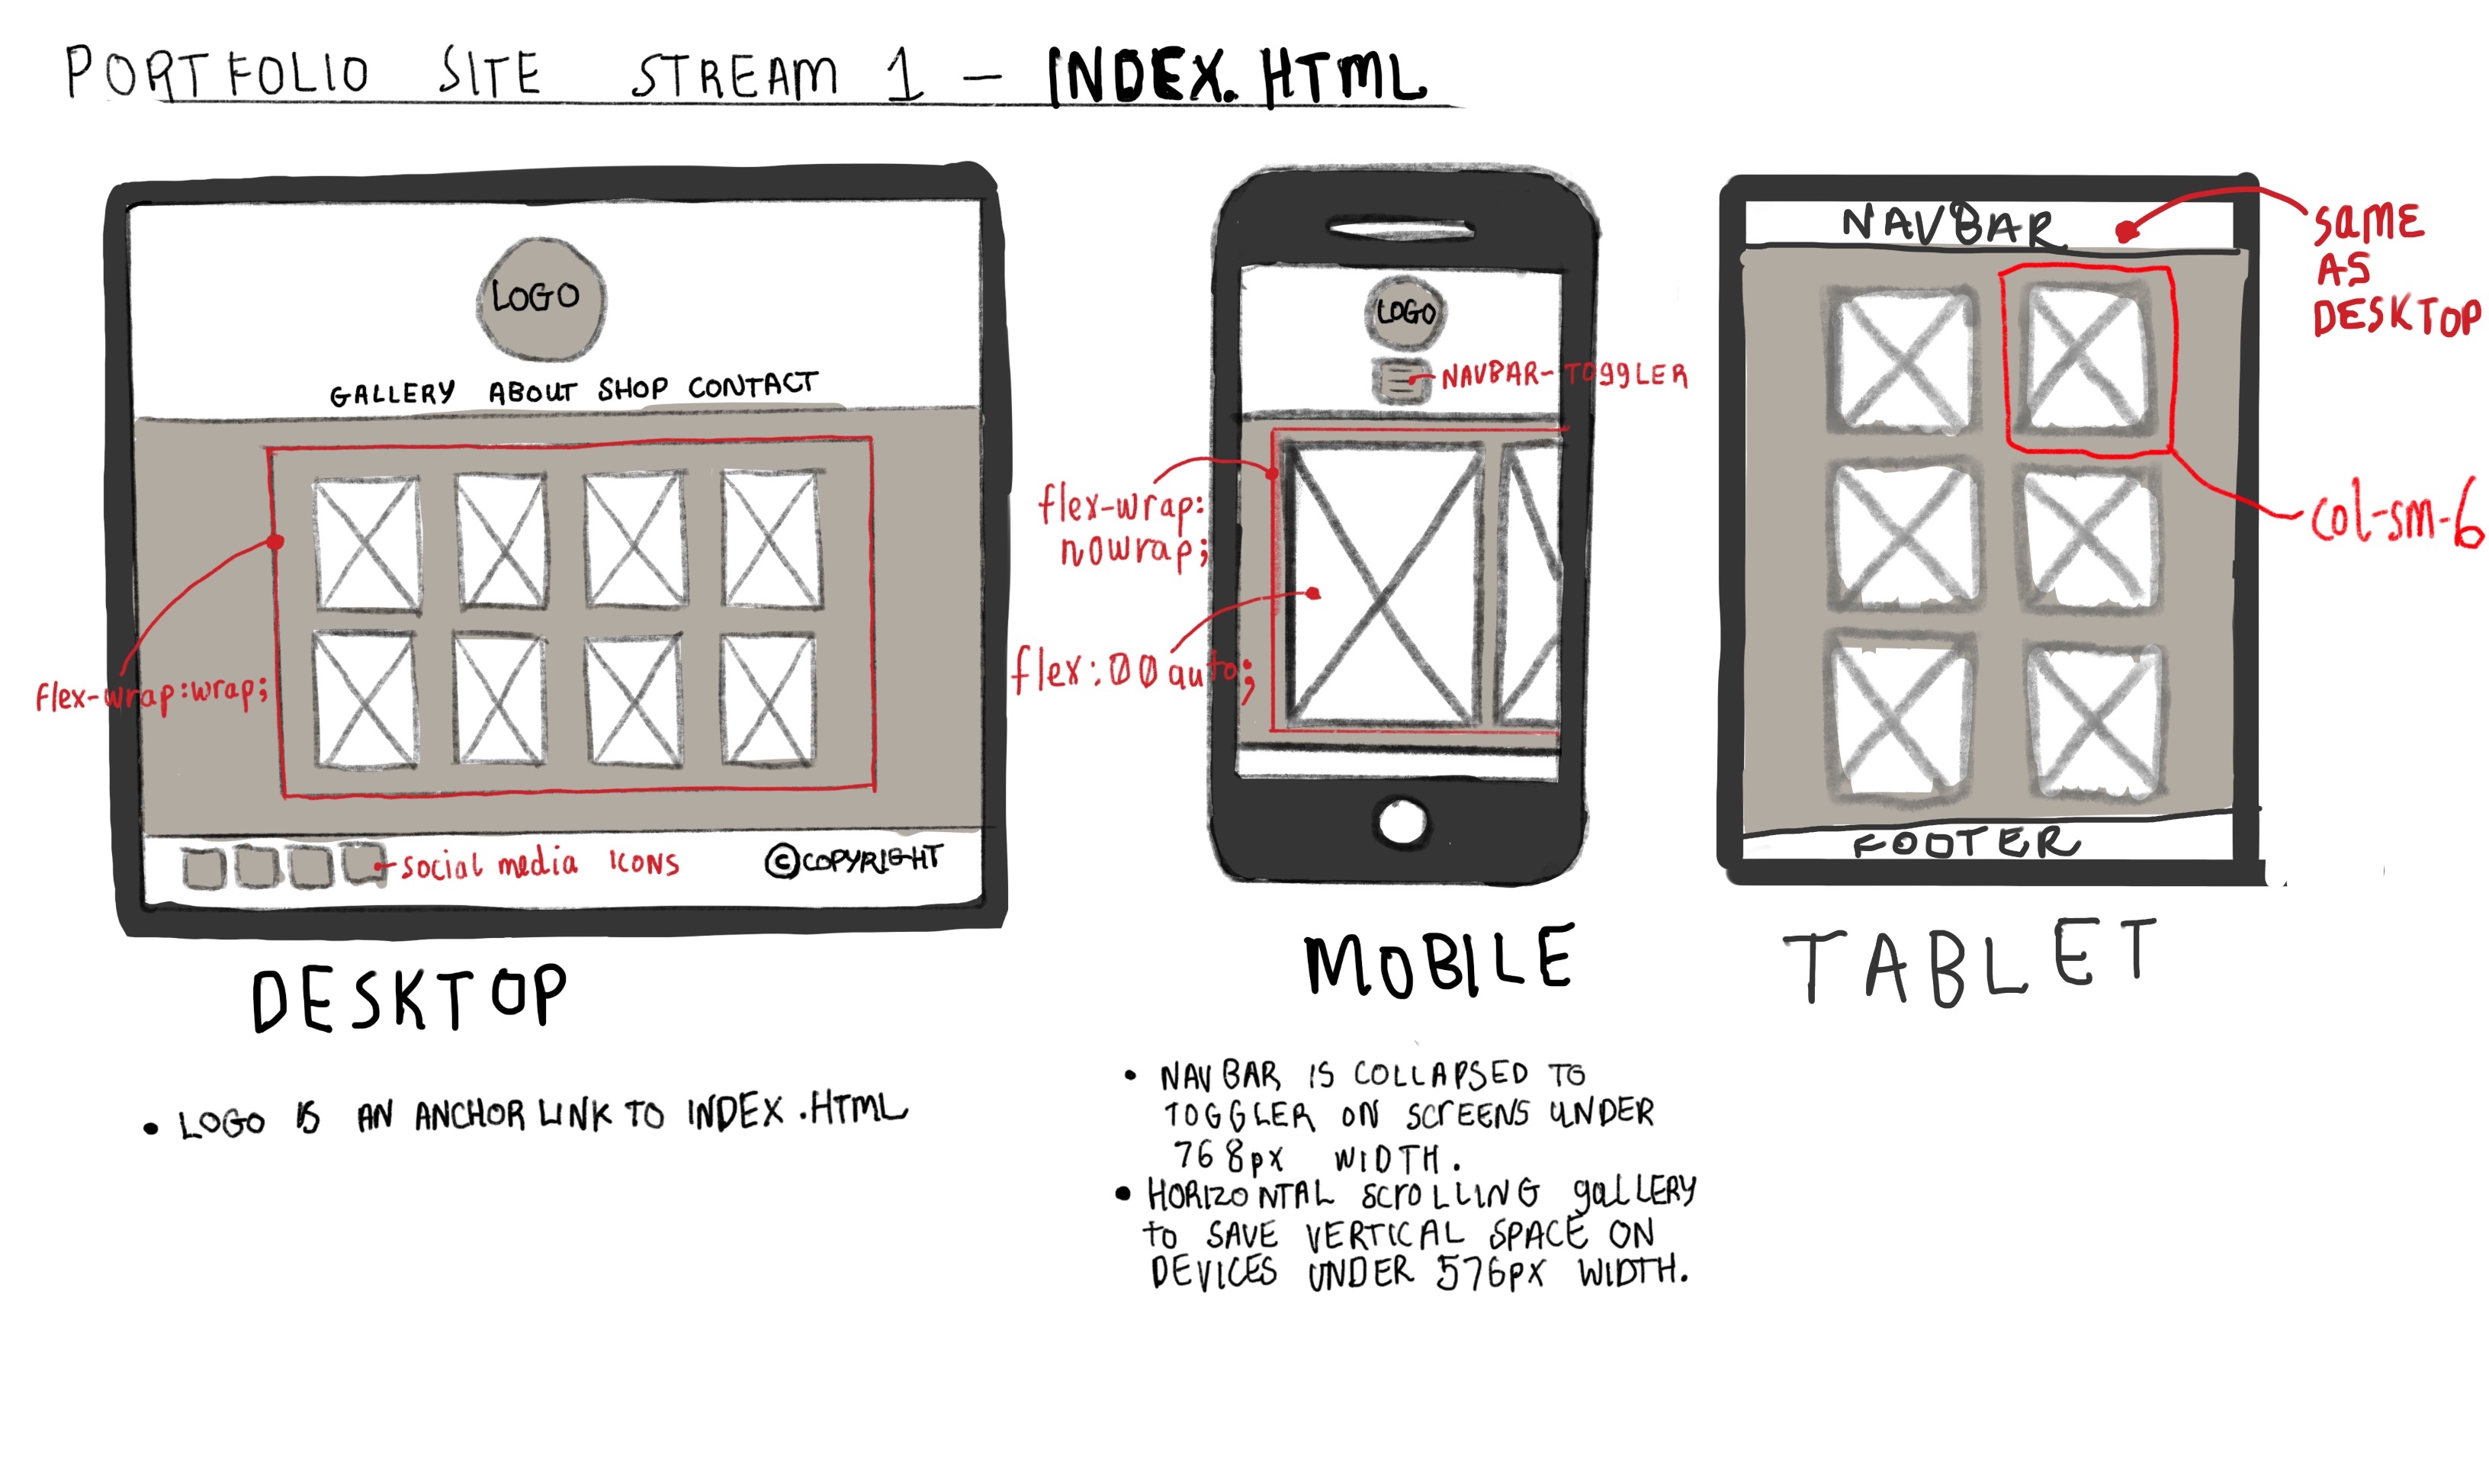 PORTFOLIO SITE STREAM 1 - INDEX.HTML
LOGO
GALLERY ABOUT SHOP CONTACT
flex-wrap:wrap;
social media icons
©COPYRIGHT
DESKTOP
• LOGO IS AN ANCHOR LINK TO INDEX.HTML
LOGO
NAVBAR-TOggLER
flex-wrap:
nowrap;
flex:00auto;
MOBILE
• NAVBAR IS COLLAPSED TO
TOGGLER ON SCREENS UNDER
768px WIDTH.
• HORIZONTAL SCROLLING gallERY
to SAVE VERTICAL SPACE ON
DEVICES UNDER 576PX WIDTH.
NAVBAR
SAME
AS
DESKTOP
col-sm-6
FOOTER
TABLET